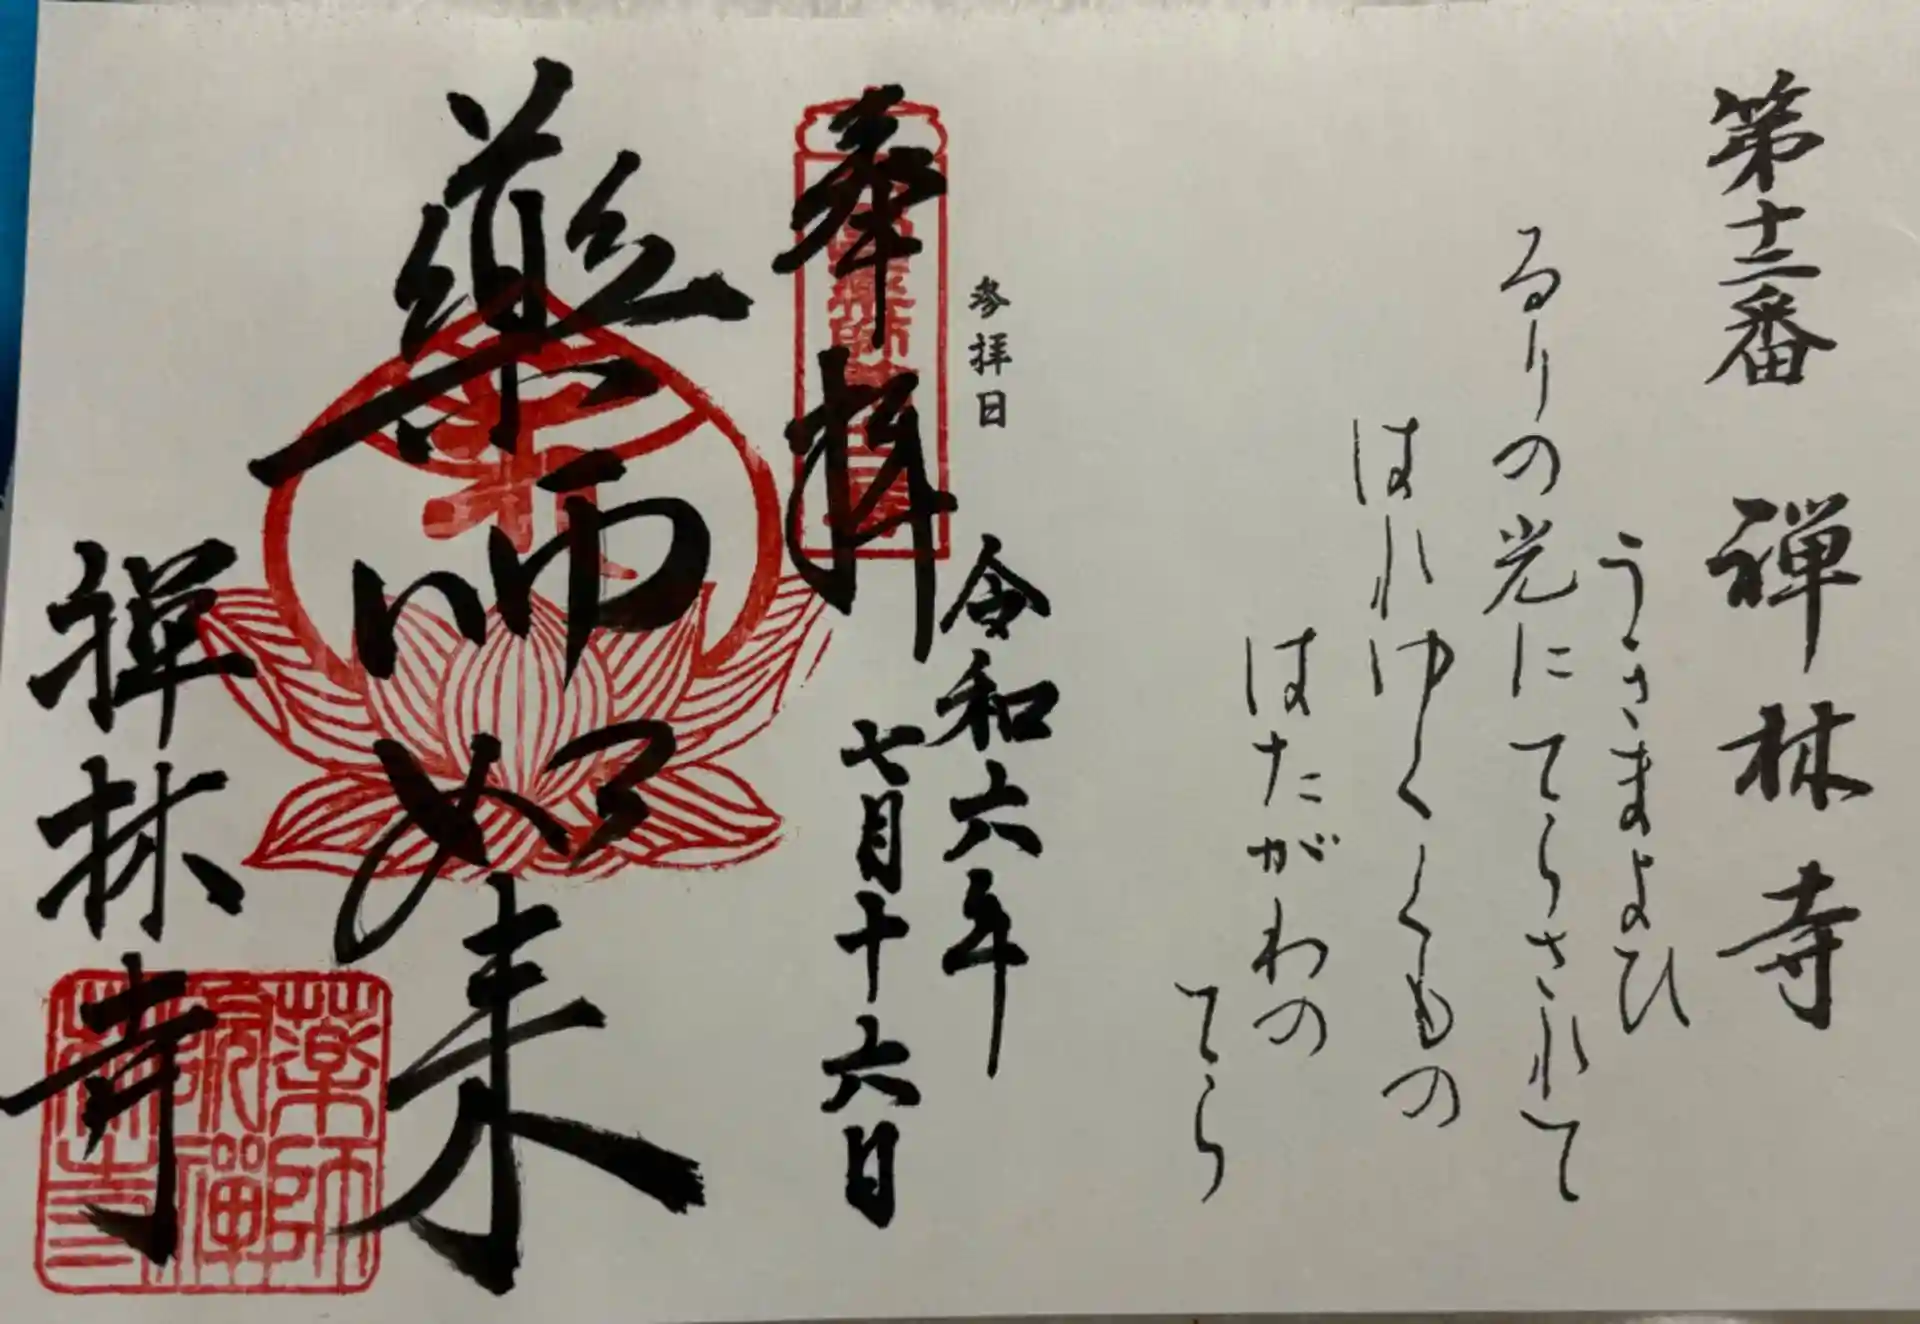 第十二番 禅林寺
うさまよひ
るりの光にてらされて
はれゆくくもの
はたがわの
てら
参拝日
令和六年
七月十六日
奉拝
薬師如来
禅林寺